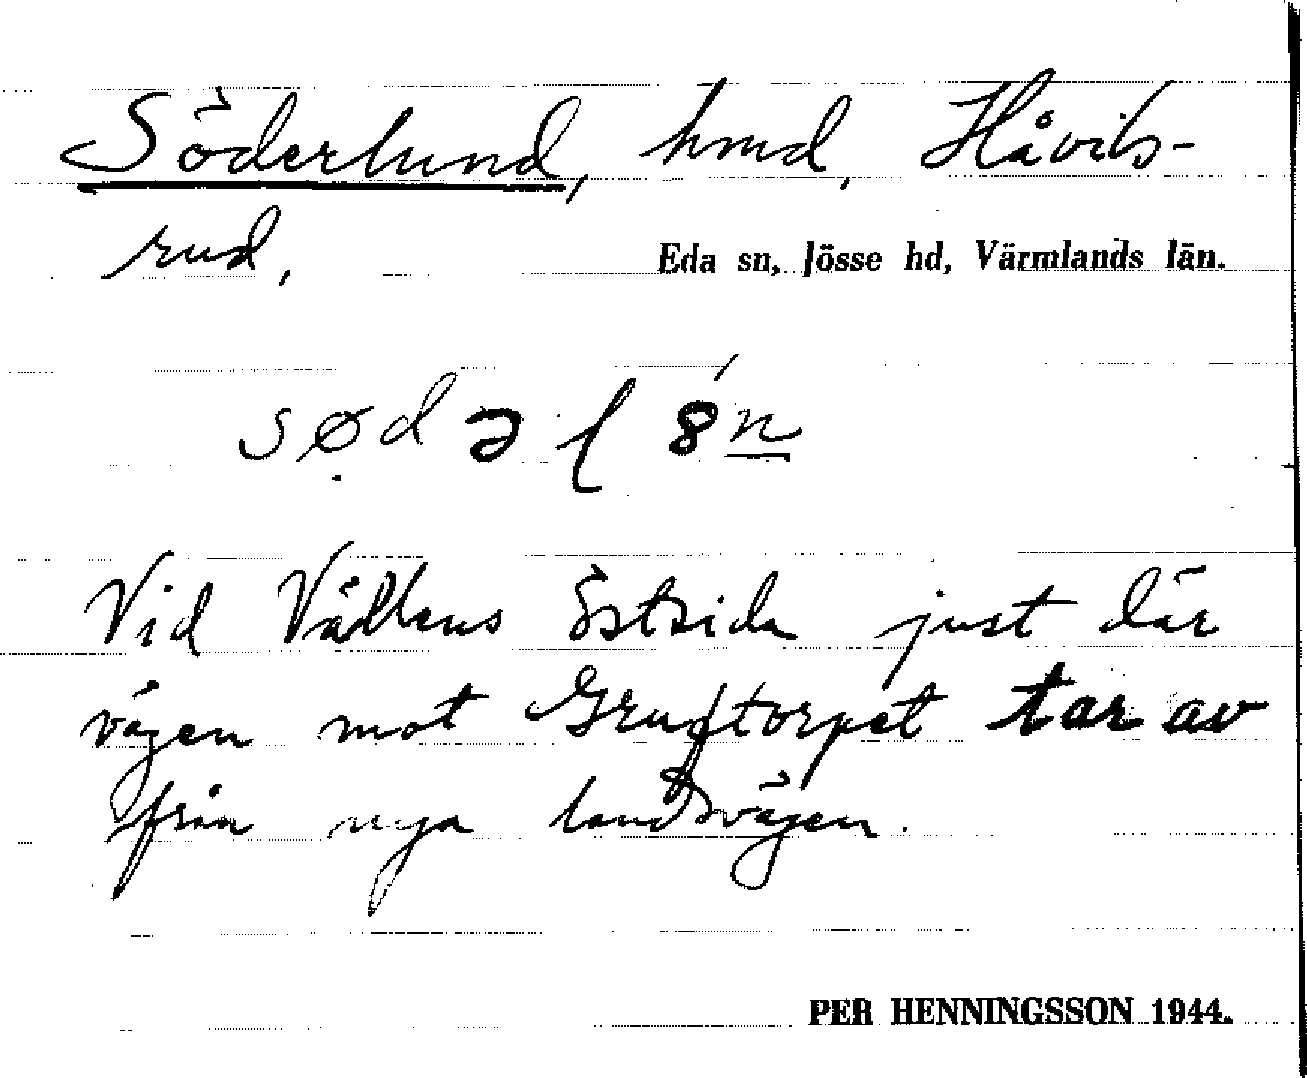 Söderlund, hmd, Håvils-
rud,
Eda sn, Jösse hd, Värmlands län.
sø̣dəl8́n
Vid Vällens östsida just där
vägen mot Gruftorpet tar av
från nya landsvägen.
PER HENNINGSSON 1944.